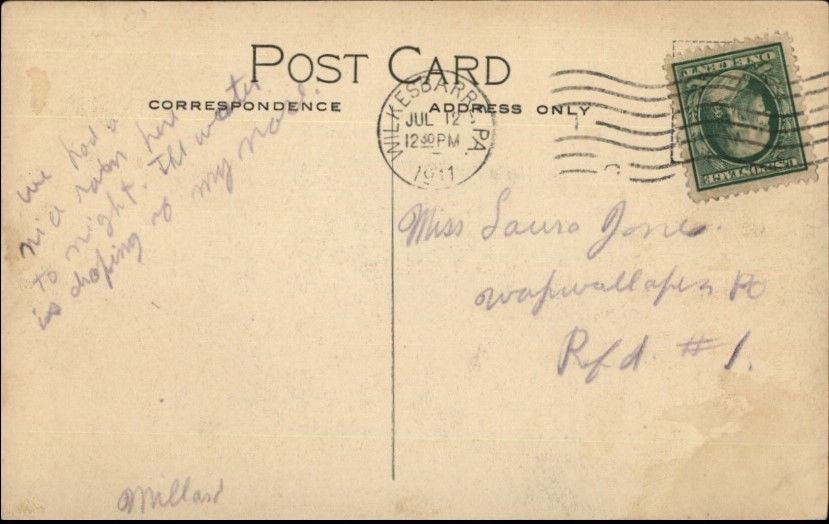 POST CARD
CORRESPONDENCE
ADDRESS ONLY
WILKESBARRE, PA.
JUL 12
12 30 PM
1911
ONE CENT
U.S. POSTAGE
we had a
nice rain here
to night. The water
is droping of my nose.
Millard
Miss Laura Jones.
Wapwallopen Pa
Rfd. #1.